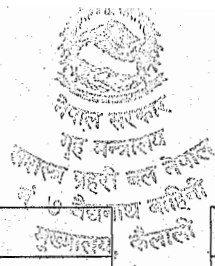 नेपाल सरकार
गृह मन्त्रालय
सशस्त्र प्रहरी बल नेपाल
नं ७ वैद्यनाथ बाहिनी
मुख्यालय कैलाली